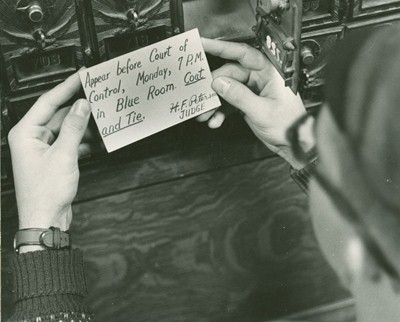 Appear before Court of
Control, Monday, 7 P.M.
in Blue Room. Coat
and Tie.
H.F. Peterson
JUDGE